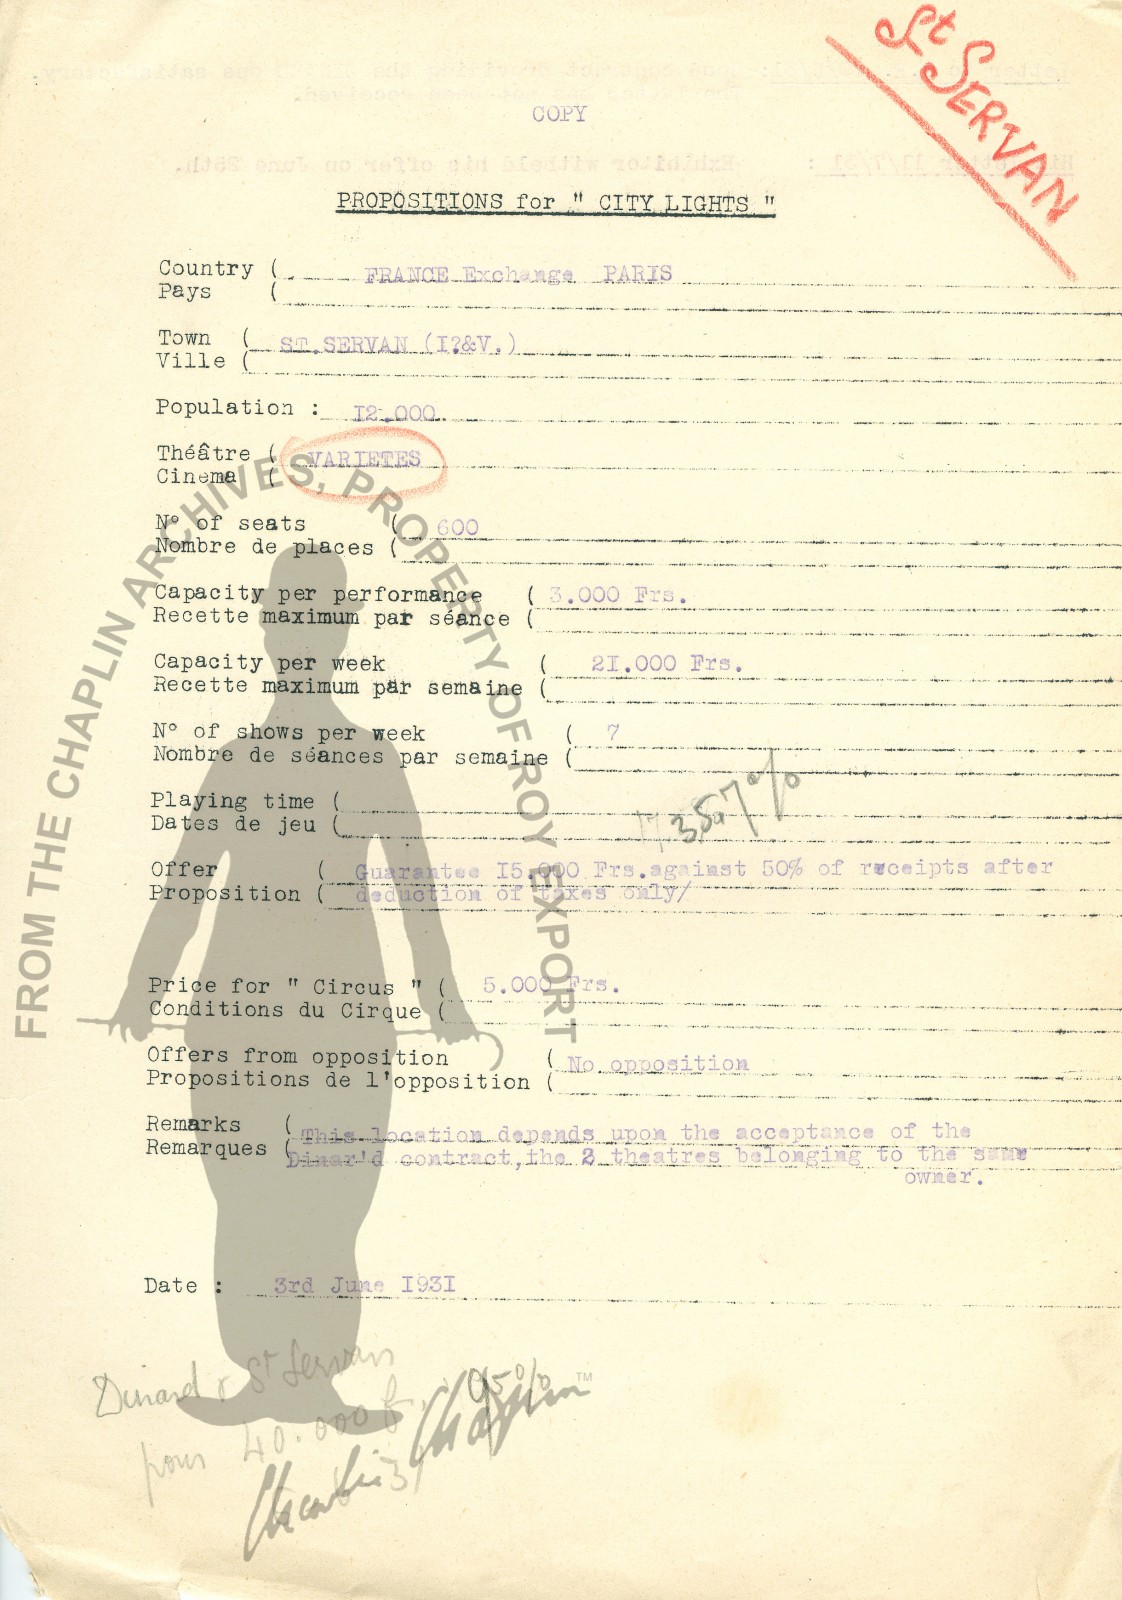 St SERVAN
COPY
PROPOSITIONS for " CITY LIGHTS "
Country ( FRANCE Exchange PARIS
Pays (
Town ( ST.SERVAN (I?&V.)
Ville (
Population : I2.000
Théâtre ( VARIETES
Cinema (
N° of seats ( 600
Nombre de places (
Capacity per performance ( 3.000 Frs.
Recette maximum par séance (
Capacity per week ( 2I.000 Frs.
Recette maximum par semaine (
N° of shows per week ( 7
Nombre de séances par semaine (
Playing time (
Dates de jeu (
Offer ( Guarantee I5.000 Frs.against 50% of receipts after
Proposition ( deduction of taxes only/
Price for " Circus " ( 5.000 Frs.
Conditions du Cirque (
Offers from opposition ( No opposition
Propositions de l'opposition (
Remarks ( This location depends upon the acceptance of the
Remarques ( Dinar'd contract,the 2 theatres belonging to the same
owner.
Date : 3rd June I93I
Dinard & St Servan
pour 40.000 f.
Charlie Chaplin TM
FROM THE CHAPLIN ARCHIVES, PROPERTY OF ROY EXPORT